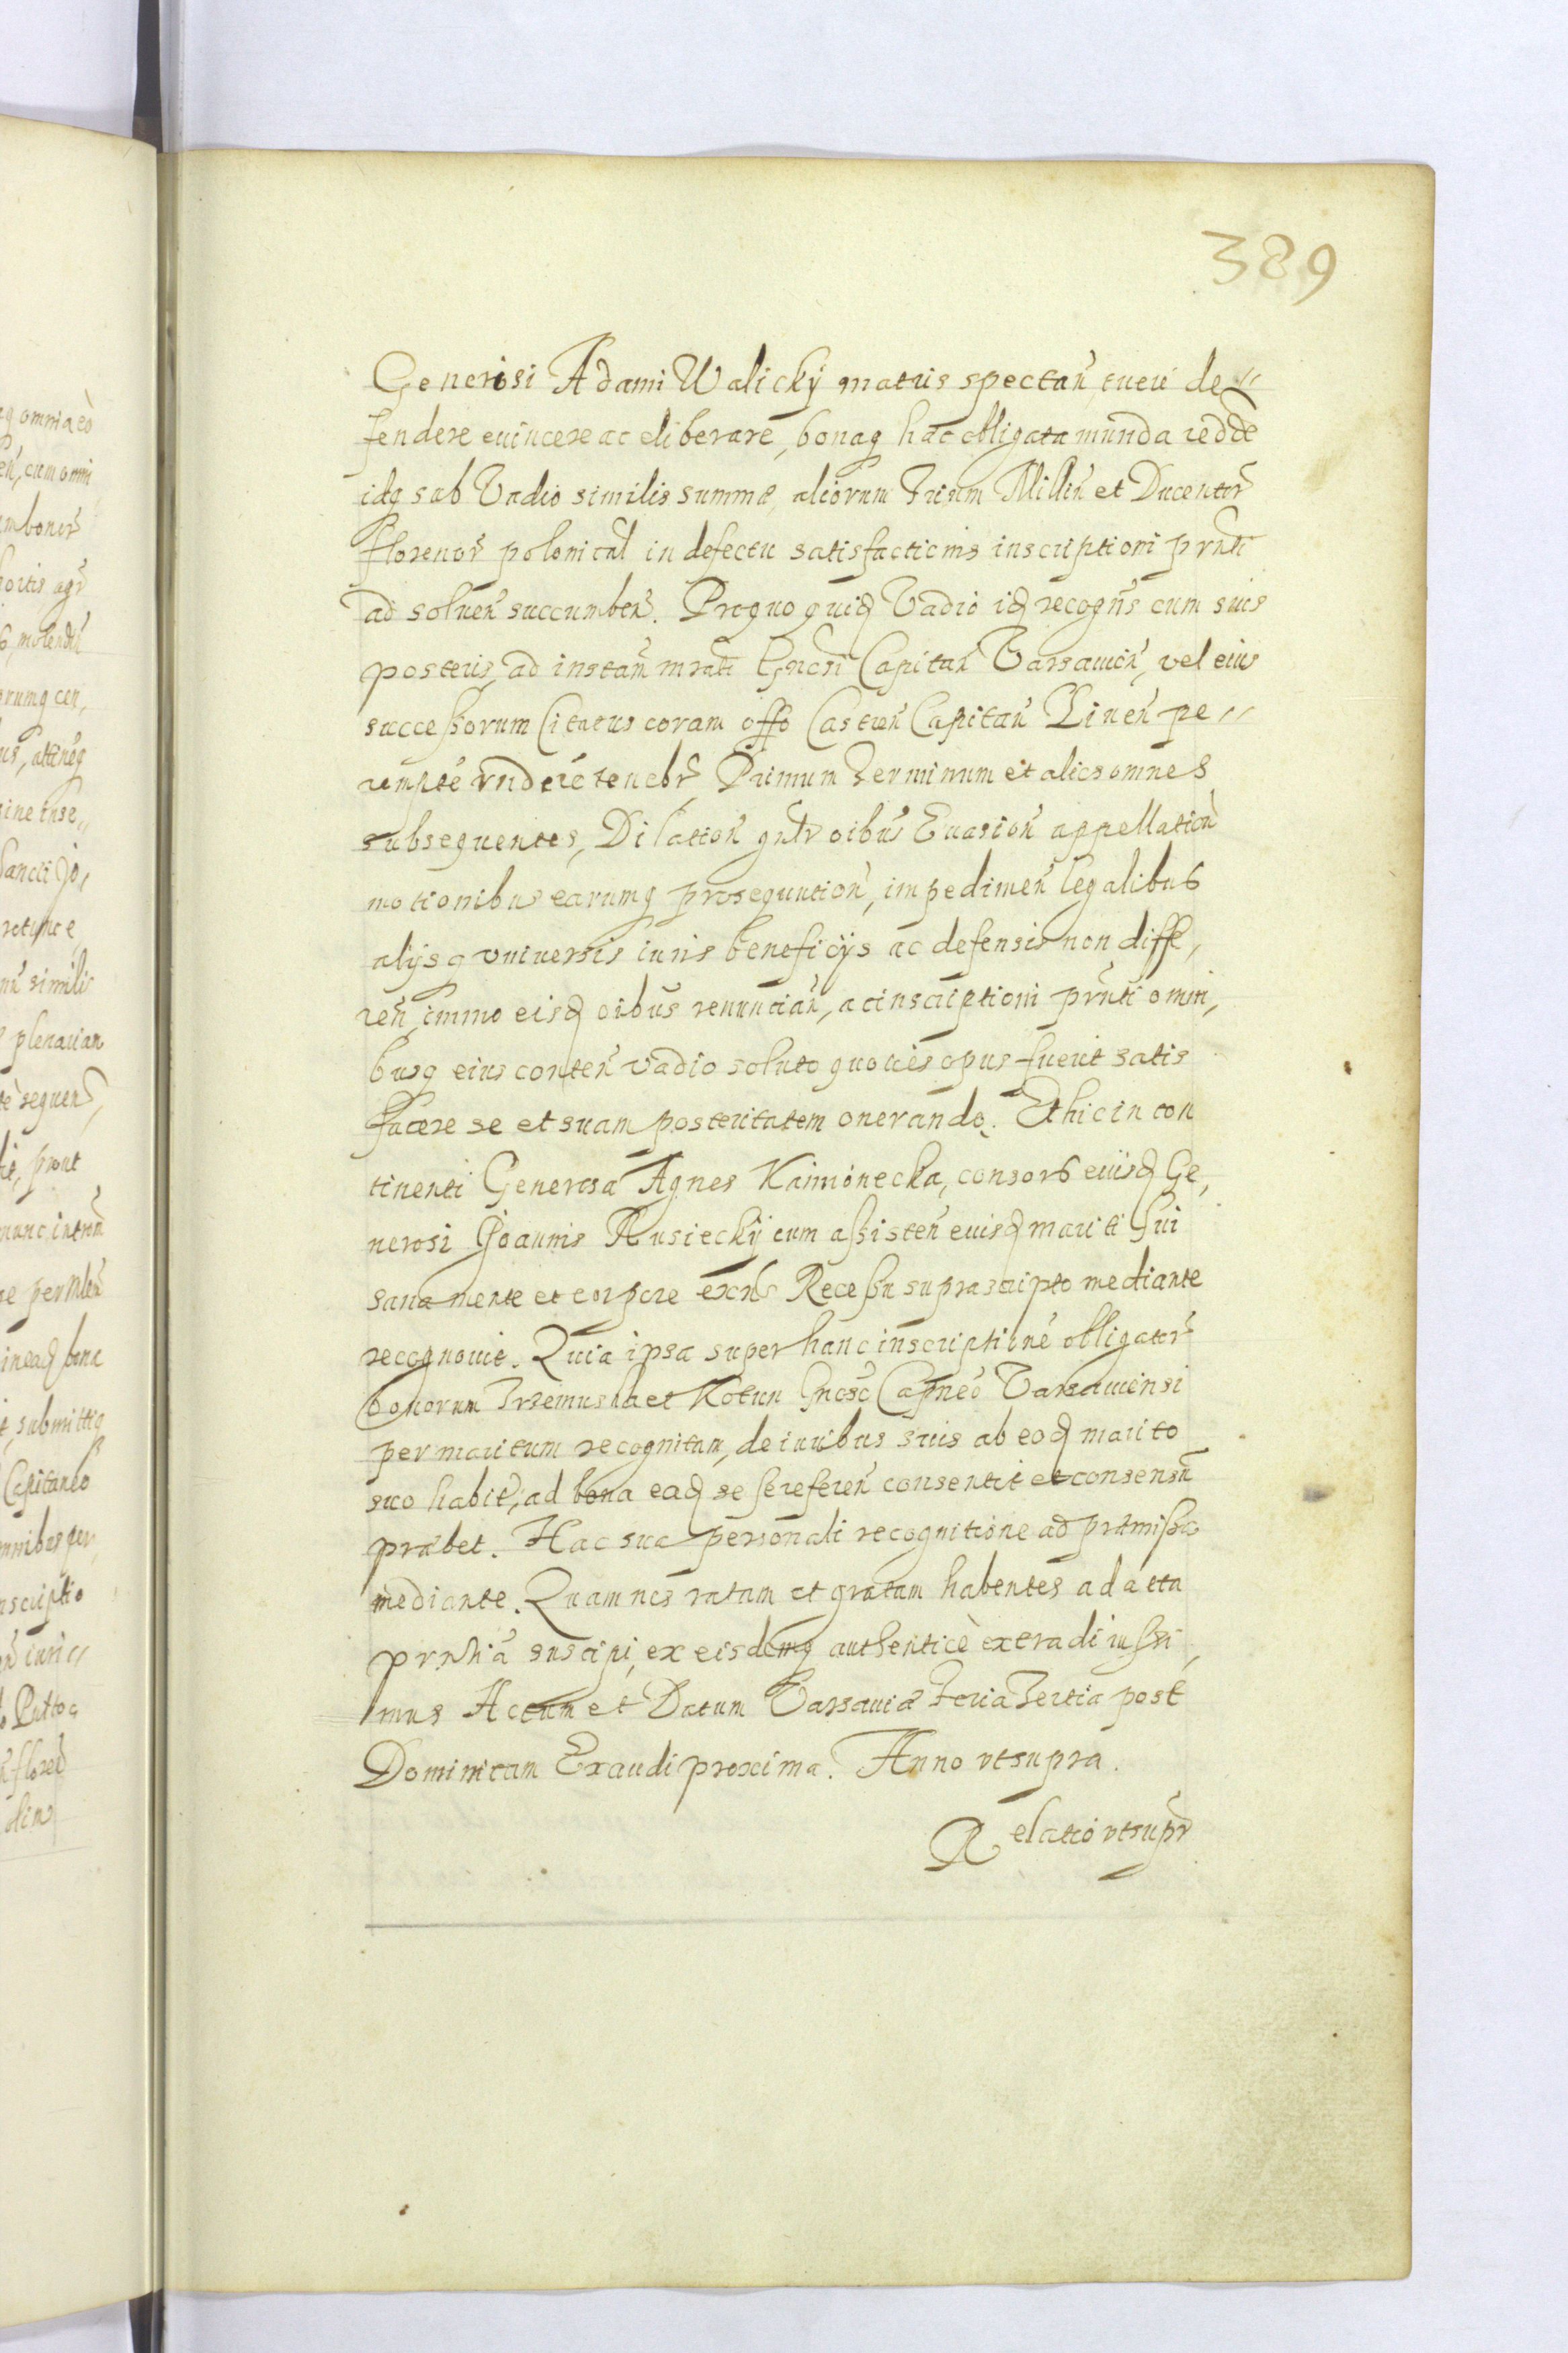 389
Generosi Adami Walickÿ matris spectañ, tueri de〃
fendere euincere ac eliberare, bonaq hac obligata munda redde
idq sub Vadio similis summæ, aliorum Trium Milliū et Ducentor̃
florenor̃ polonical in defectu satisfactionis inscriptioni prñti
ad soluen̄ succumbeñ. Proquo quidē Vadio idē recogñs cum suis
posteris, ad instañ mrati Gñosi Capitañ Varsauieñ, vel eius
successorum Citatus coram offo Castreñ Capitañ Lineñ pe〃
remptè rñdere tenebr̃ Primum Terminum et alios omnes
subsequentes, Dilatioñ gnlr oibus Euasioñ appellatioñ
motionibus earumq prosequutioñ, impedimeñ legalibus
alijsq vniuersis iuris beneficijs ac defensis non diffe,
reñ, immo eisdē oibus renunciañ, ac inscriptioni prñti omni,
busq eius conteñ vadio soluto quoties opus fuerit satis
facere se et suam posteritatem onerando. Et hic in con
tinenti Generosa Agnes Kaimonecka, consors eiusdē Ge,
nerosi Joannis Rusieckÿ cum assisteñ eiusdē mariti sui
sana mente et corpore exñs Recessu suprascripto mediante
recognouit. Quia ipsa super hanc inscriptionē obligator̃
bonorum Trzemuska et Kotun Gñoso Capneo Varsauiensi
per maritum recognitam, de iuribus suis ab eodē marito
suo habit, ad bona eadē se se refereñ consentit et consensū
præbet. Hac sua personali recognitione ad præmissa
mediante. Quam nos ratam et gratam habentes ad acta
prñtia suscipi, ex eisdemq authenticè ex tradi iussi,
mus Actum et Datum Varsauiæ Feria Tertia post
Dominicam Exaudi proxima. Anno vt supra.
Relatio vt supr̃